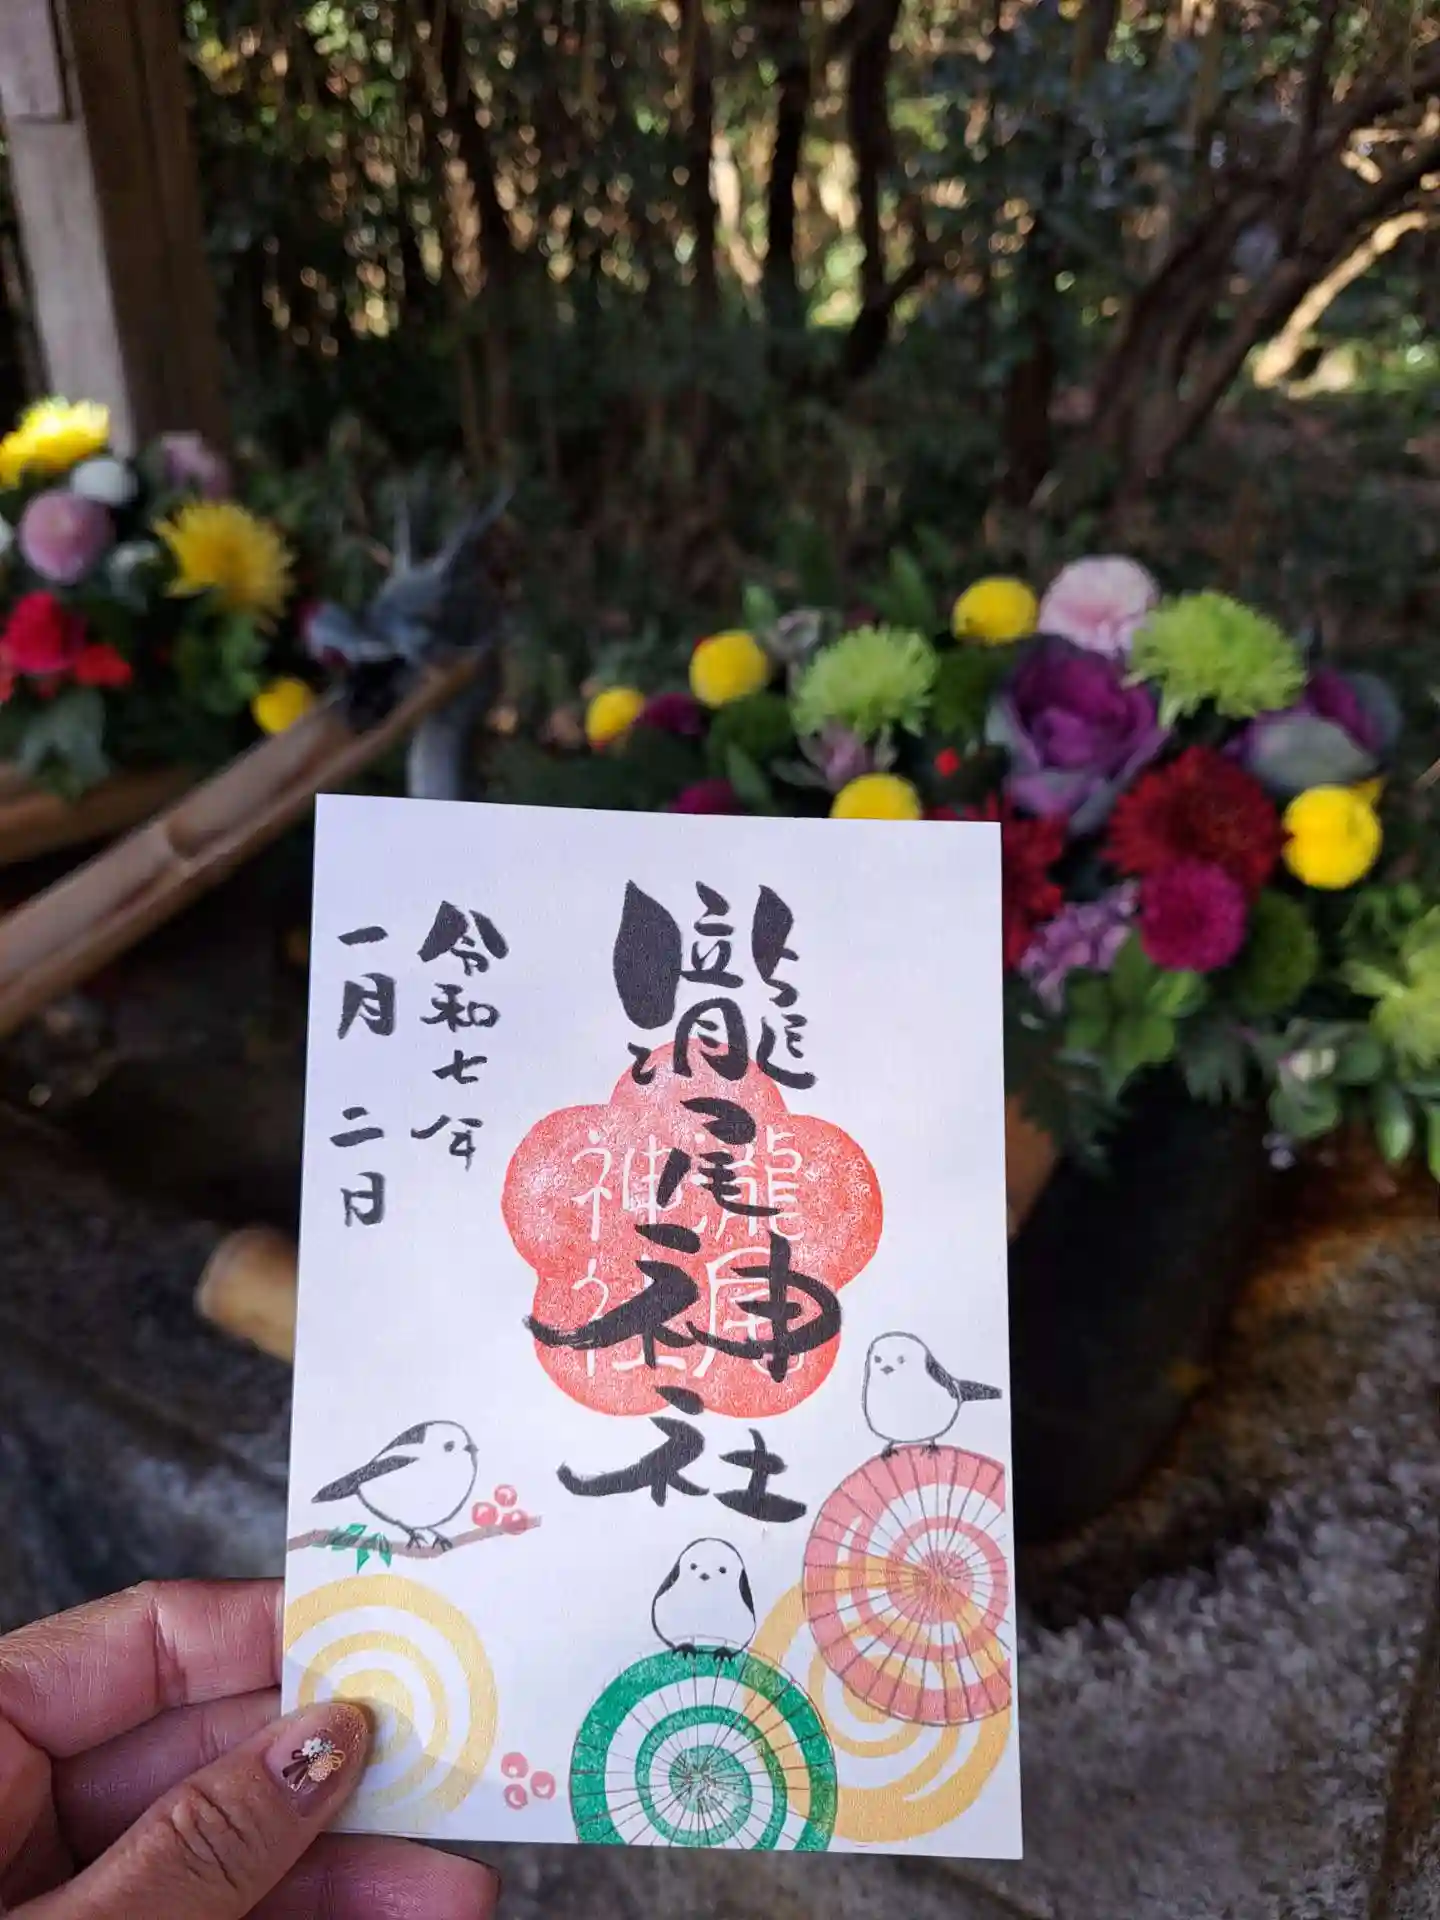 瀧尾神社
龍尾
神社
令和七年
一月二日